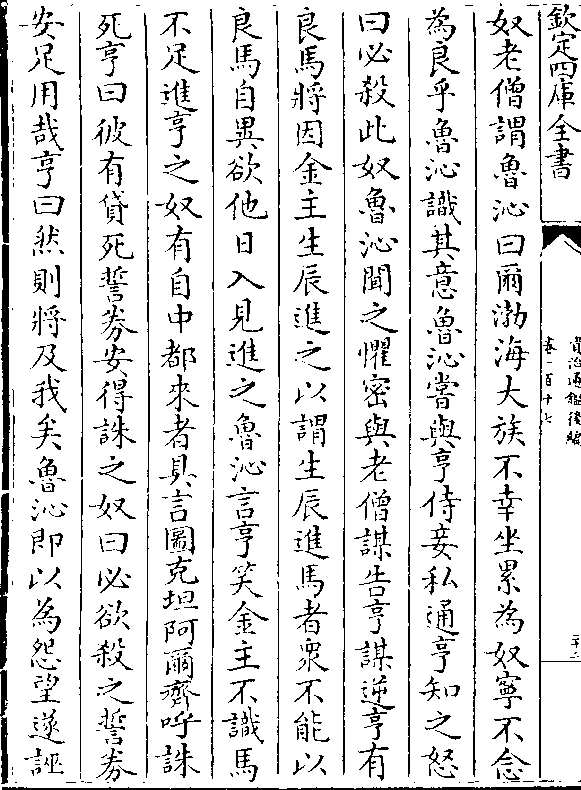 欽定四庫全書
資治通鑑後編
卷一百十七
奴老僧謂魯沁曰爾渤海大族不幸坐累為奴寧不念
為良乎魯沁識其意魯沁嘗與亨侍妾私通亨知之怒
曰必殺此奴魯沁聞之懼密與老僧謀告亨謀逆亨有
良馬將因金主生辰進之以謂生辰進馬者衆不能以
良馬自異欲他日入見進之魯沁言亨笑金主不識馬
不足進亨之奴有自中都來者具言圖克坦阿爾齊呼誅
死亨曰彼有貸死誓券安得誅之奴曰必欲殺之誓券
安足用哉亨曰然則將及我矣魯沁即以為怨望遂誣